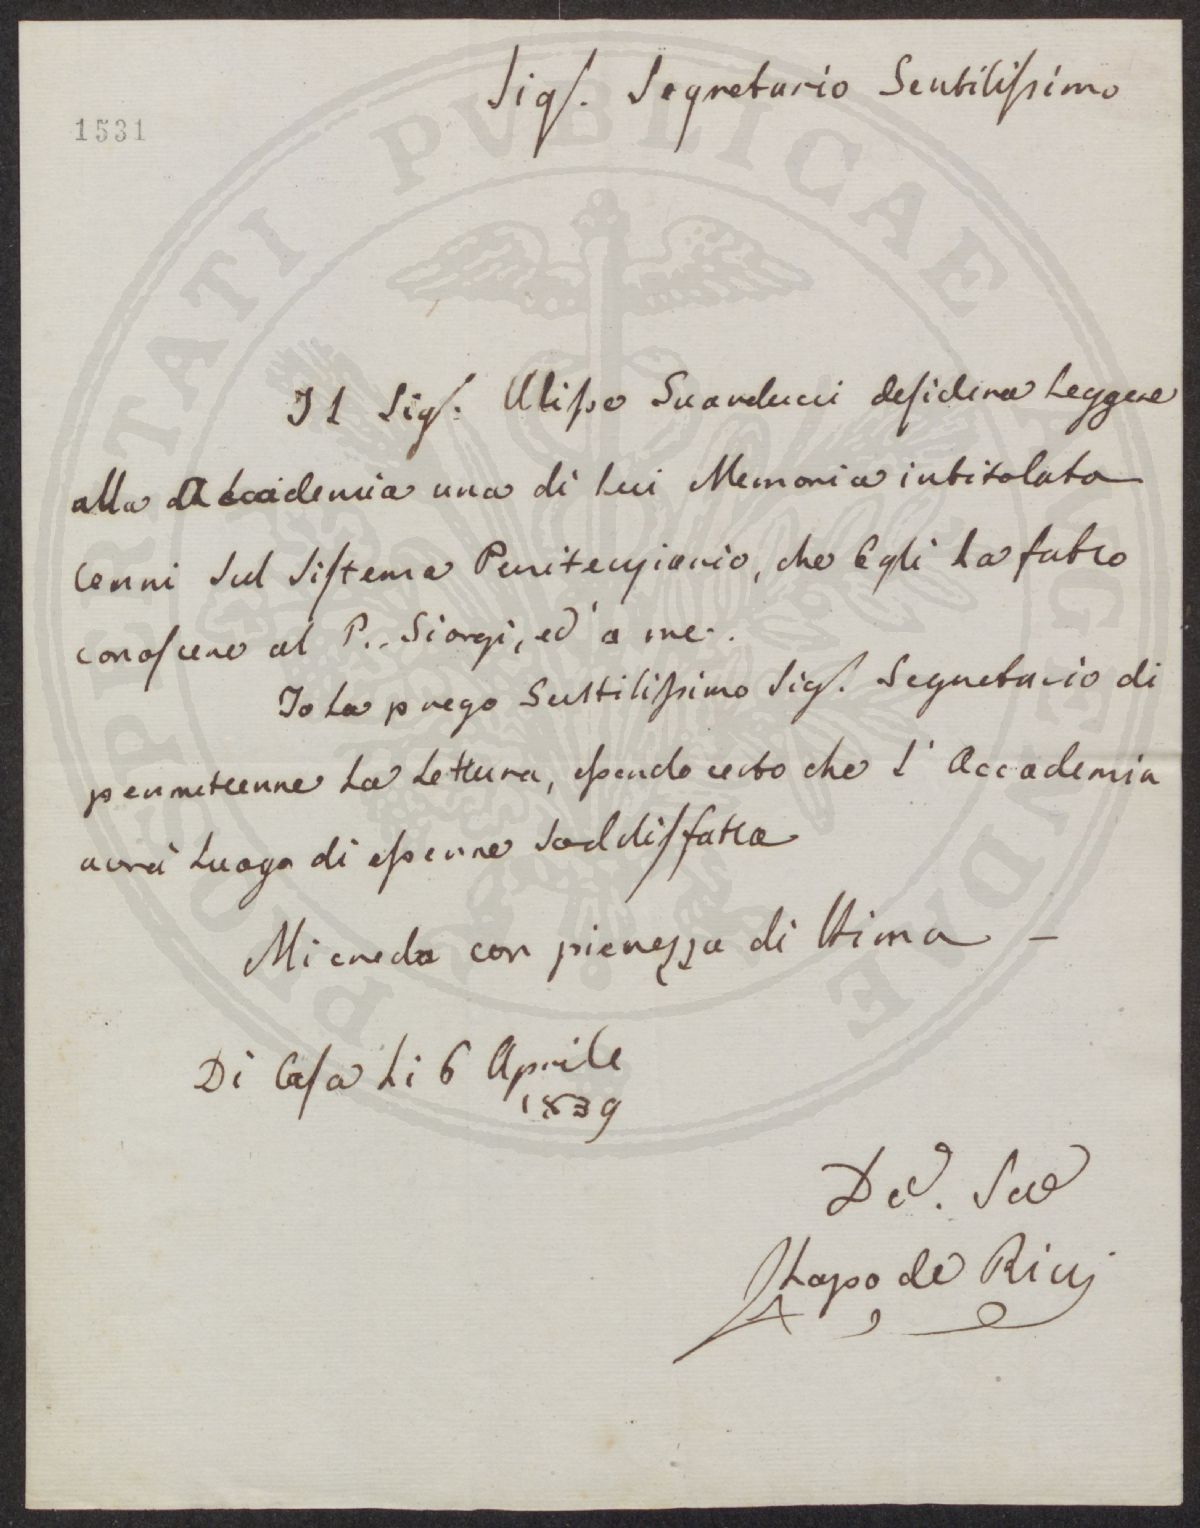 1531
Sigr. Segretario Gentilissimo
Il Sigr. Ulisse Guarducci desidera leggere
alla Accademia una di lui Memoria intitolata
Cenni sul Sistema Penitenziario, che Egli ha fatto
conoscere al P.. Giorgi, ed a me.
Io la prego Gentilissimo Sigr. Segretario di
permetterne la lettura, essendo certo che l'Accademia
avrà luogo di esserne soddisfatta
Mi creda con pienezza di stima –
Di Casa li 6 Aprile
1839
De. Suo
Lapo de Ricci
PROSPERITATI PVBLICAE AVGENDAE